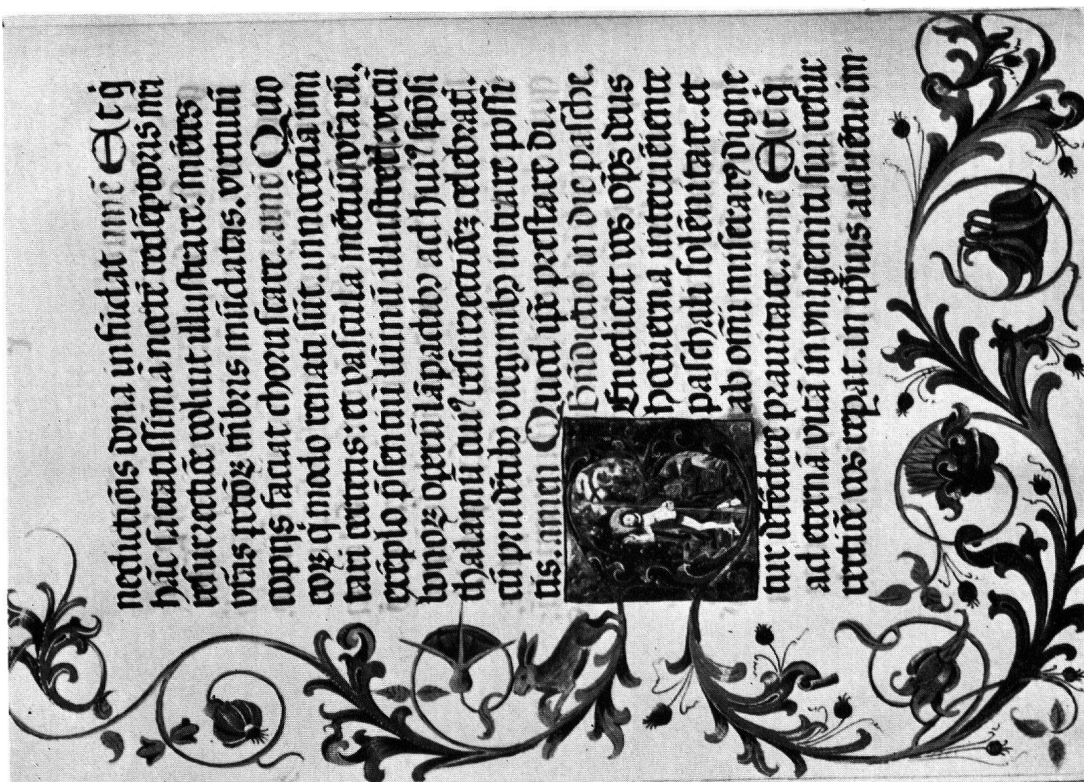 nedictiõis dona ĩfũdat amẽ Et q̃
hãc sacratissimã noctẽ redẽptoris nr̃i
resurrectiõe voluit illustrare. mẽtes
vr̃as pctõꝝ tẽbris mũdatas. virtutũ
copijs faciat choruscare. amẽ Quo
eoꝝ q̃ modo renati sũt. innocẽciã imi
tari certetis: et vascula mẽtiũ vr̃arũ,
exẽplo p̃sentiũ lũinũ illustretis. vt cũ
bonoꝝ operũ lãpadibꝫ ad huiꝰ spõsi
thalamũ cuiꝰ resurrectiõeꝫ celebratis.
cũ prudẽtibꝫ virginibꝫ intrare possi-
tis. amen Quod ip̃e prestare di.
Bñdictio in die pasche.
Benedicat vos op̃s deus
hodierna interueniente
paschali solẽnitate. et
ab om̃i miserat᷑ digne
tur defẽdere prauitate. amẽ Et q̃
ad eternã vitã in vnigeniti sui resur
rectiõe vos repat. in ip̃ius aduẽtu im-